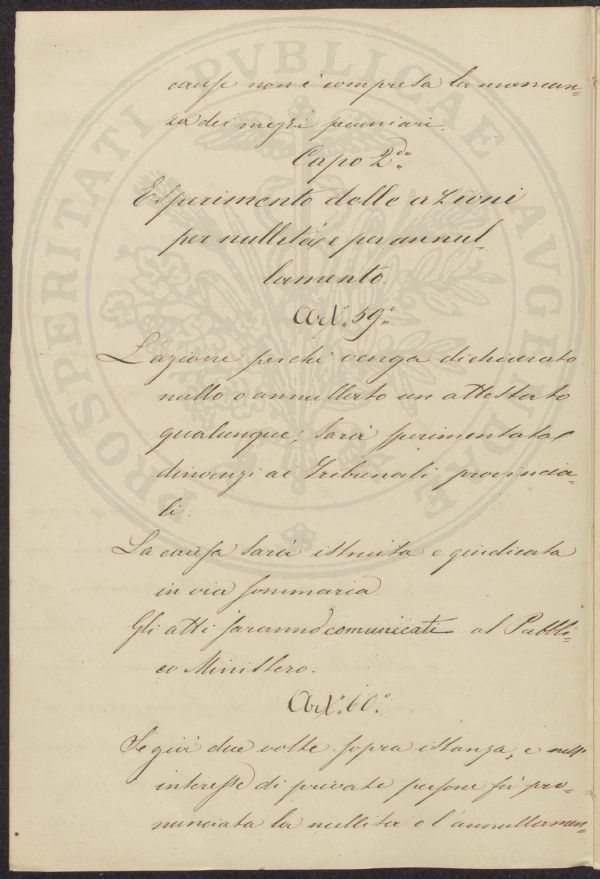 cause non è compresa la mancan=
za dei mezzi pecuniari.
Capo 2.do
Esperimento delle azioni
per nullità, e per annul
lamento.
Art.° 59.°
L'azione perchè venga dichiarato
nullo o annullato un attestato
qualunque, sarà sperimentata
dinanzi ai Tribunali provincia=
li.
La causa sarà istruita e giudicata
in via sommaria.
Gli atti saranno comunicati al Pubbli=
co Ministero.
Art.° 60.°
Se già due volte sopra istanza, e nell'
interesse di private persone fu pro=
nunciata la nullità o l'annullamen=
PROSPERITATI PVBLICAE AVGENDAE